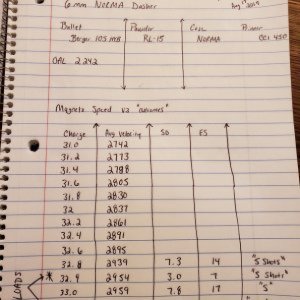 6mm Norma Dasher
Aug 2015
Bullet Powder Case Primer
Berger 105 RL-15 NORMA CCI 450
OAL 2.242
Magneto Speed V2 "outcomes"
Charge Avg. Velocity SD ES
31.0 2742
31.2 2773
31.4 2788
31.6 2805
31.8 2830
32 2837
32.2 2861
32.4 2891
32.6 2895
32.8 2939 7.3 14 "5 Shots"
* 32.9 2954 3.0 7 "5 Shots"
33.0 2959 7.8 17 "5
LOADS